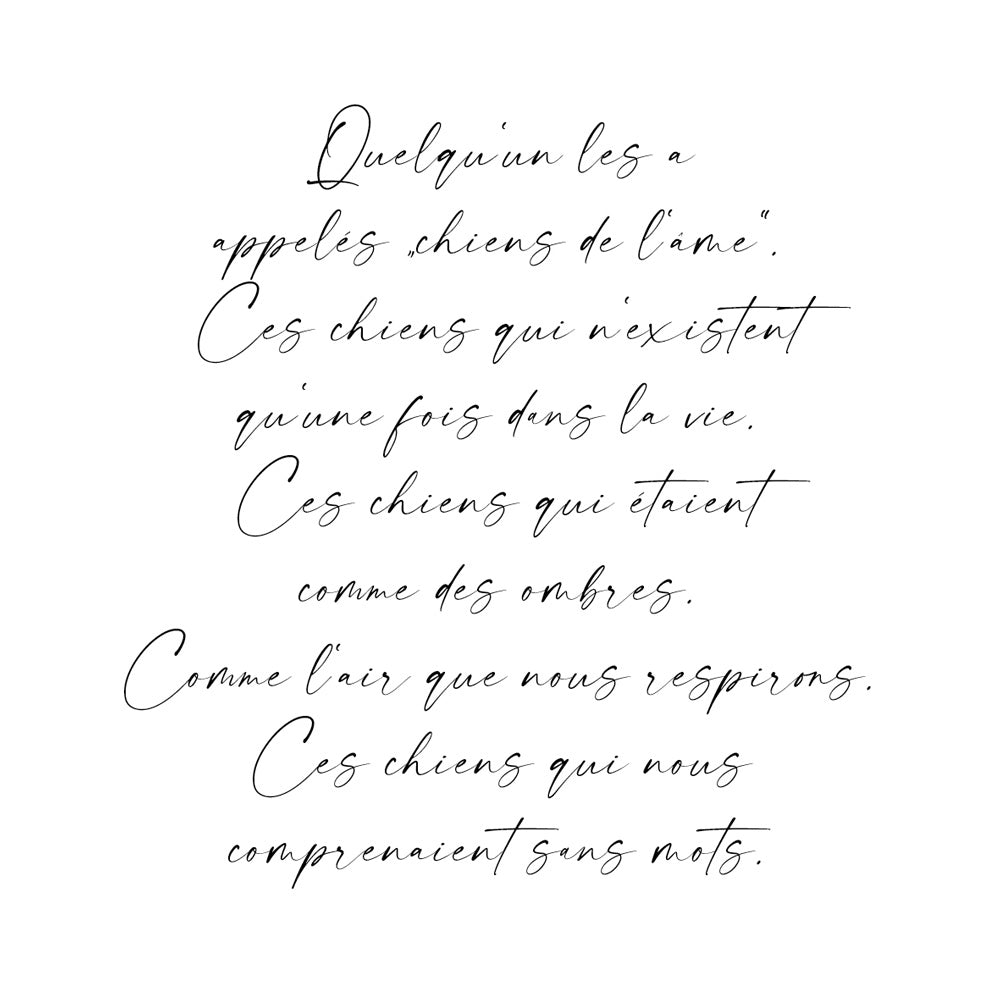 Quelqu'un les a
appelés „chiens de l'âme“.
Ces chiens qui n'existent
qu'une fois dans la vie.
Ces chiens qui étaient
comme des ombres.
Comme l'air que nous respirons.
Ces chiens qui nous
comprenaient sans mots.